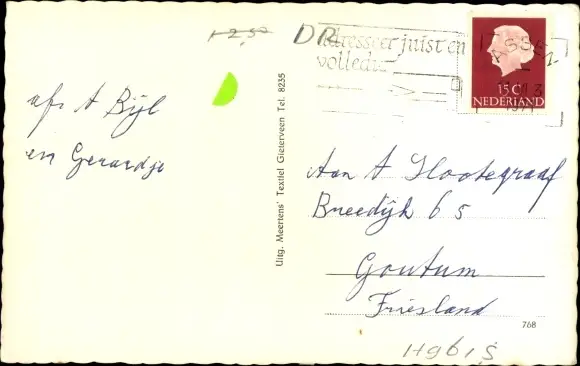 1-2,50
DR
Adresseer juist en
volledig
ASSEN
15 C
NEDERLAND
afz A Bijl
en Gerardje
Uitg. Meertens' Textiel Gieterveen Tel. 8235
Aan A Slootegraaf
Breedijk 6 s
Goutum
Friesland
768